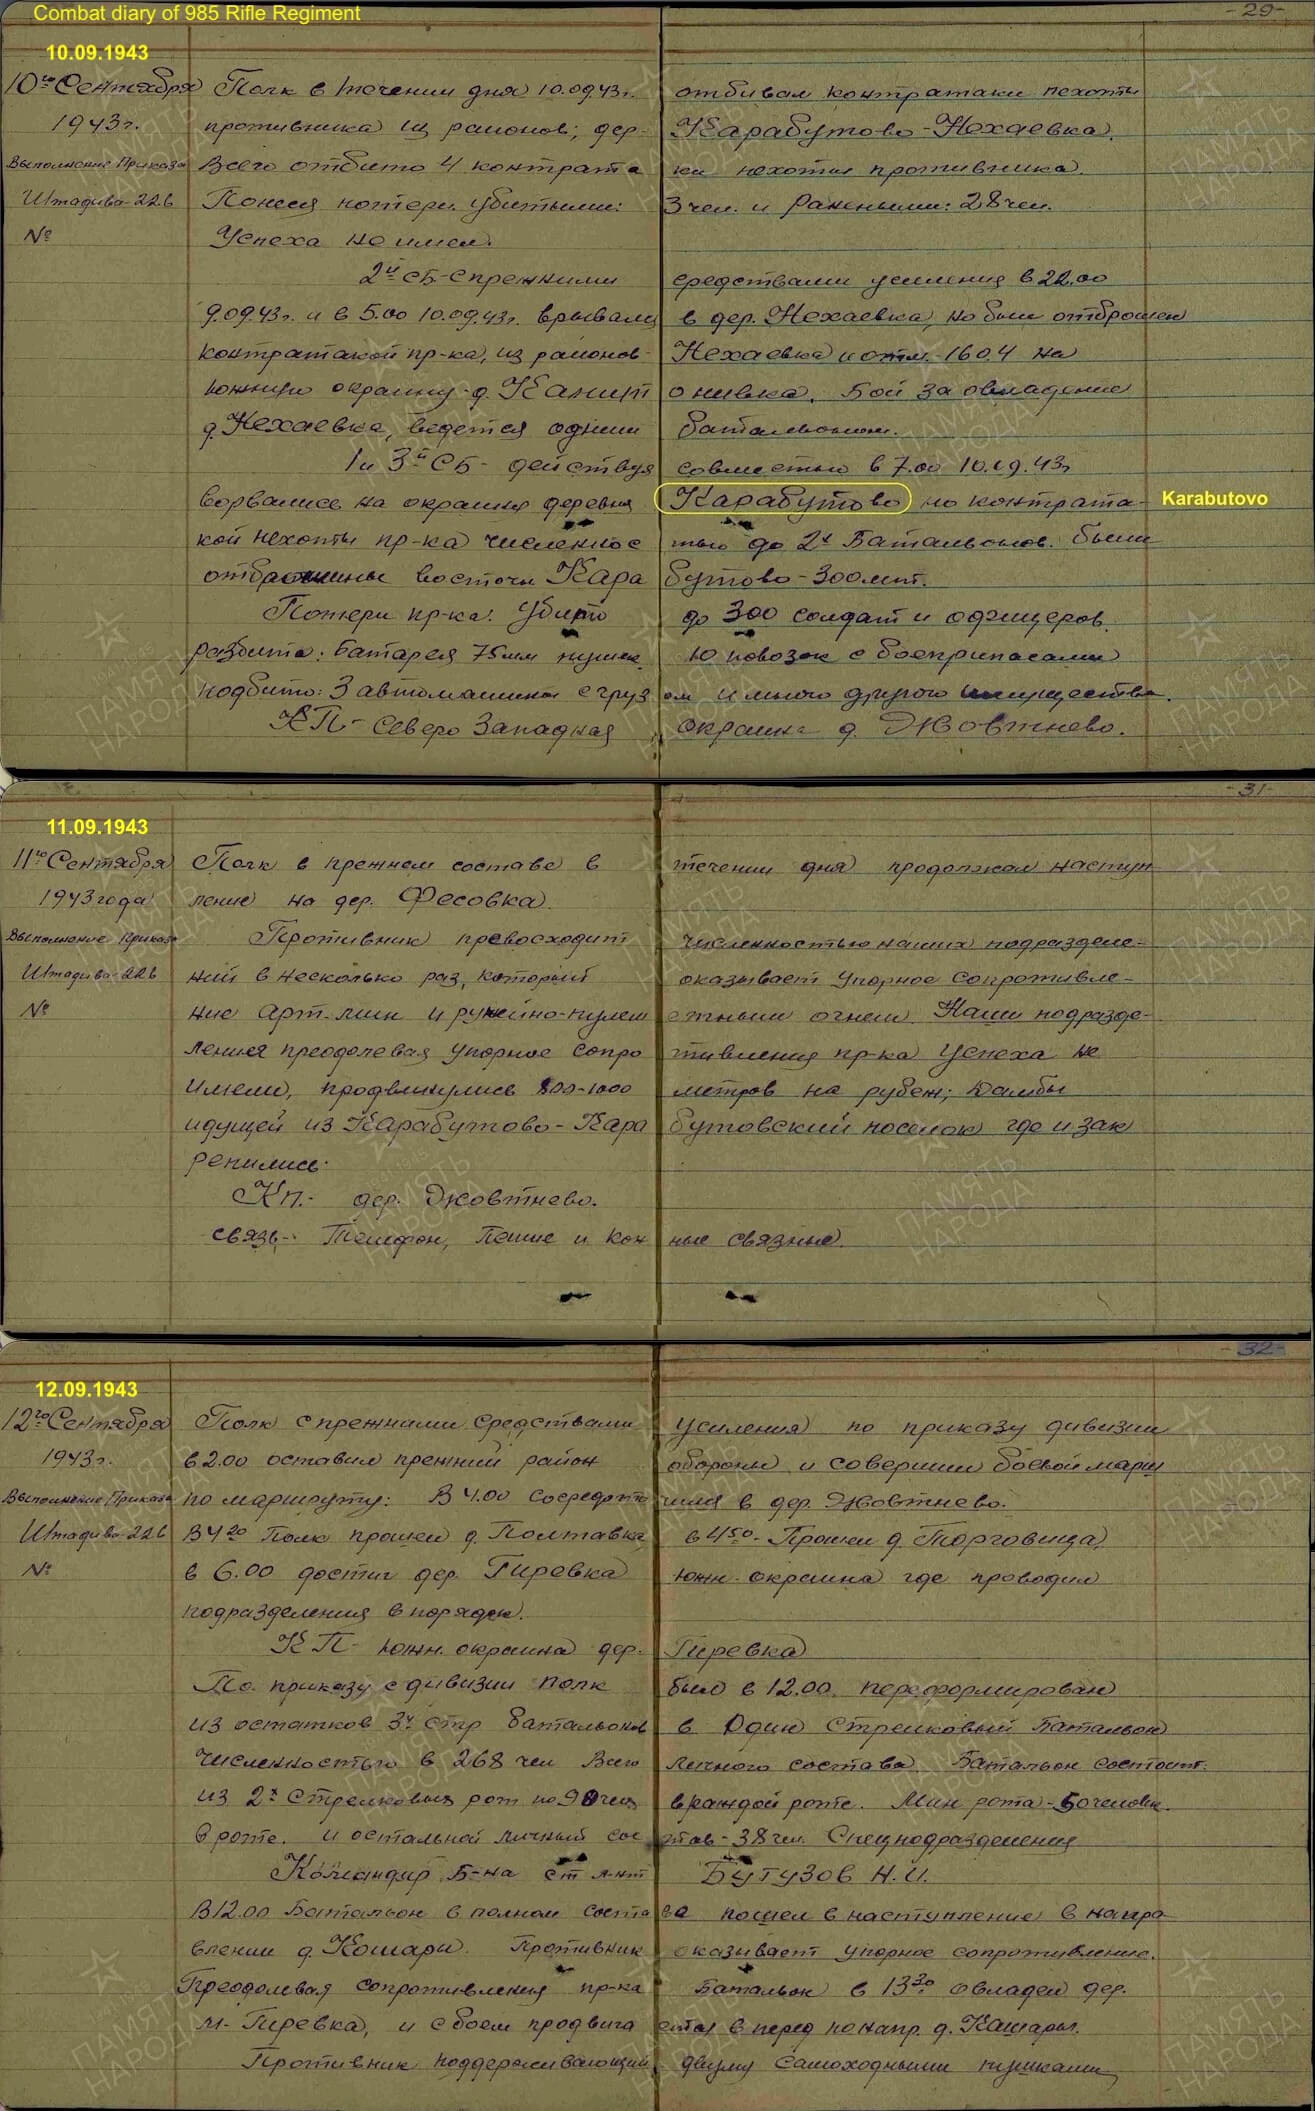 Combat diary of 985 Rifle Regiment
-29-
10.09.1943
10го Сентября Полк в течении дня 10.09.43г. отбивал контратаки пехоты
1943г. противника из районов; дер- Карабутово-Нехаевка.
Выполнение Приказа Всего отбито 4 контратаки пехоты противника.
Штадива-226 Понеся потери. убитыми: 3 чел. и ранеными: 28 чел.
№ Успеха не имел.
2й СБ-с прежними средствами усиления в 22.00
9.09.43г. и в 5.00 10.09.43г. врывались в дер. Нехаевка, но были отброшен
контратакой пр-ка, из районов- Нехаевка и отм.-160.4 на
южную окраину-д. Калитоновка. Бой за овладение
д. Нехаевка, ведется одним батальоном.
1 и 3й СБ- действуя совместно в 7.00 10.09.43г
ворвались на окраину деревня Карабутово но контрата- Karabutovo
кой пехоты пр-ка численностью до 2х Батальонов. были
отброшины восточн Карабутово-300мт.
Потери пр-ка: Убито до 300 солдат и офицеров.
разбита: батарея 75мм пушек. 10 повозок с боеприпасами
подбито: 3 автомашины с грузом и много другого имущества.
КП- Северо Западная окраина д. Жовтнево.
-31-
11.09.1943
11го Сентября Полк в прежнем составе в течении дня продолжал наступ
1943 года ление на дер. Фесовка.
Выполнение Приказа Противник превосходит численностью наших подразделе-
Штадива-226 ний в несколько раз, который оказывает упорное сопротивле-
№ ние Арт-мин и ружейно-пулеметным огнем. Наши подразде-
ления преодолевая упорное сопротивления пр-ка успеха не
имели, продвинулись 800-1000 метров на рубеж; Дамбы
идущей из Карабутово-Карабутовский поселок где и зак
репились.
КП.- дер. Жовтнево.
связь-: Телефон, Пешие и Конные связные.
-32-
12.09.1943
12го Сентября Полк с прежними средствами усиления по приказу дивизии
1943г. в 2.00 оставил прежний район обороны и совершил боевой марш
Выполнение Приказа по маршруту: В 4.00 сосредоточился в дер. Жовтнево.
Штадива-226 В 4 20 Полк прошел д. Полтавка, в 4 50- Прошел д. Торговица,
№ в 6.00 достиг дер. Гиревка южн. окраина где проводил
подразделения в порядок.
КП- южн. окраина дер. Гиревка
По приказу с дивизии полк был в 12.00. переформирован
из остатков 3х стр батальонов в Один Стрелковый Батальон
численностью в 268 чел Всего личного состава. Батальон состоит:
из 2х Стрелковых рот по 90 чел в каждой роте. Мин рота-50 человек.
в роте. и остальной личный состав-38 чел. Спецподразделения
Командир Б-на ст л-нт Бутузов Н.И.
В 12.00 Батальон в полном составе пошел в наступление в напра
влении д. Кошары. Противник оказывает упорное сопротивление.
Преодолевая сопротивления пр-ка Батальон в 13 30 овладел дер.
м-Гиревка, и с боем продвигается в перед по напр. д. Кашары.
Противник поддерживающий двумя самоходными пушками,